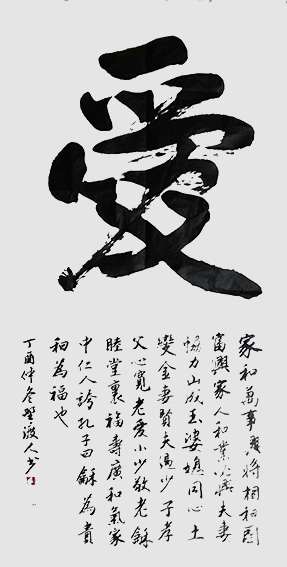 愛
家和萬事興將相和國
富興家人和業必興夫妻
協力山成玉婆媳同心土
變金妻賢夫禍少子孝
父心寬老愛小少敬老龢
睦堂裏福壽廣和氣家
中仁人誇孔子曰龢為貴
和為福也
丁酉仲冬人书